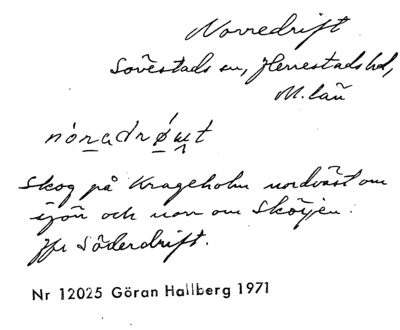 Norredrift
Sövestads sn, Herrestads hd,
M. län
nòradrǿwt
Skog på Krageholm nordväst om
sjön och norr om Sköljen.
Jfr Söderdrift.
Nr 12025 Göran Hallberg 1971